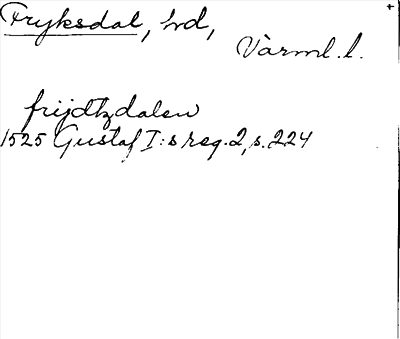 Fryksdal, hd,
Värml. l.
frijdtzdalen
1525 Gustaf I:s reg. 2, s. 224